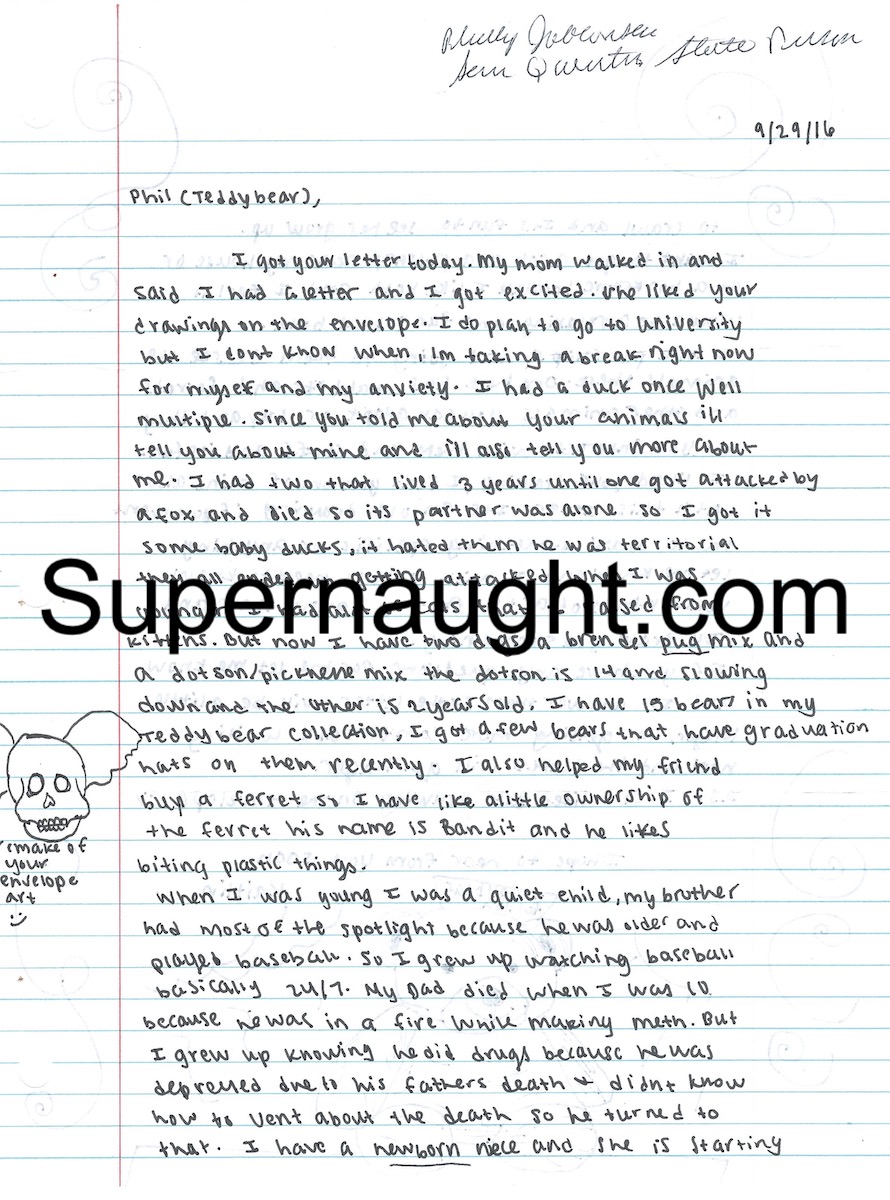 Jablonski
San Quentin State Prison
9/29/16
Phil (Teddybear),
I got your letter today. My mom walked in and
said I had a letter and I got excited. She liked your
drawings on the envelope. I do plan to go to University
but I dont know when, Im taking a break right now
for myself and my anxiety. I had a duck once well
multiple. Since you told me about your animals ill
tell you about mine and i'll also tell you more about
me. I had two that lived 3 years until one got attacked by
a fox and died so its partner was alone so I got it
some baby ducks, it hated them he was territorial
they all ended up getting attacked. When I was
younger I had cats that I raised from
Supernaught.com
kittens. But now I have two dogs a brendel pug mix and
a dotson/picknene mix the dotson is 14 and slowing
down and the other is 2 years old. I have 15 bears in my
Teddybear collection, I got a few bears that have graduation
hats on them recently. I also helped my friend
buy a ferret so I have like alittle ownership of
the ferret his name is Bandit and he likes
biting plastic things.
remake of
your
envelope
art
:)
When I was young I was a quiet child, my brother
had most of the spotlight because he was older and
played baseball. So I grew up watching baseball
basically 24/7. My Dad died when I was 10
because he was in a fire while making meth. But
I grew up knowing he did drugs because he was
depressed due to his fathers death & didnt know
how to vent about the death so he turned to
that. I have a newborn niece and she is starting